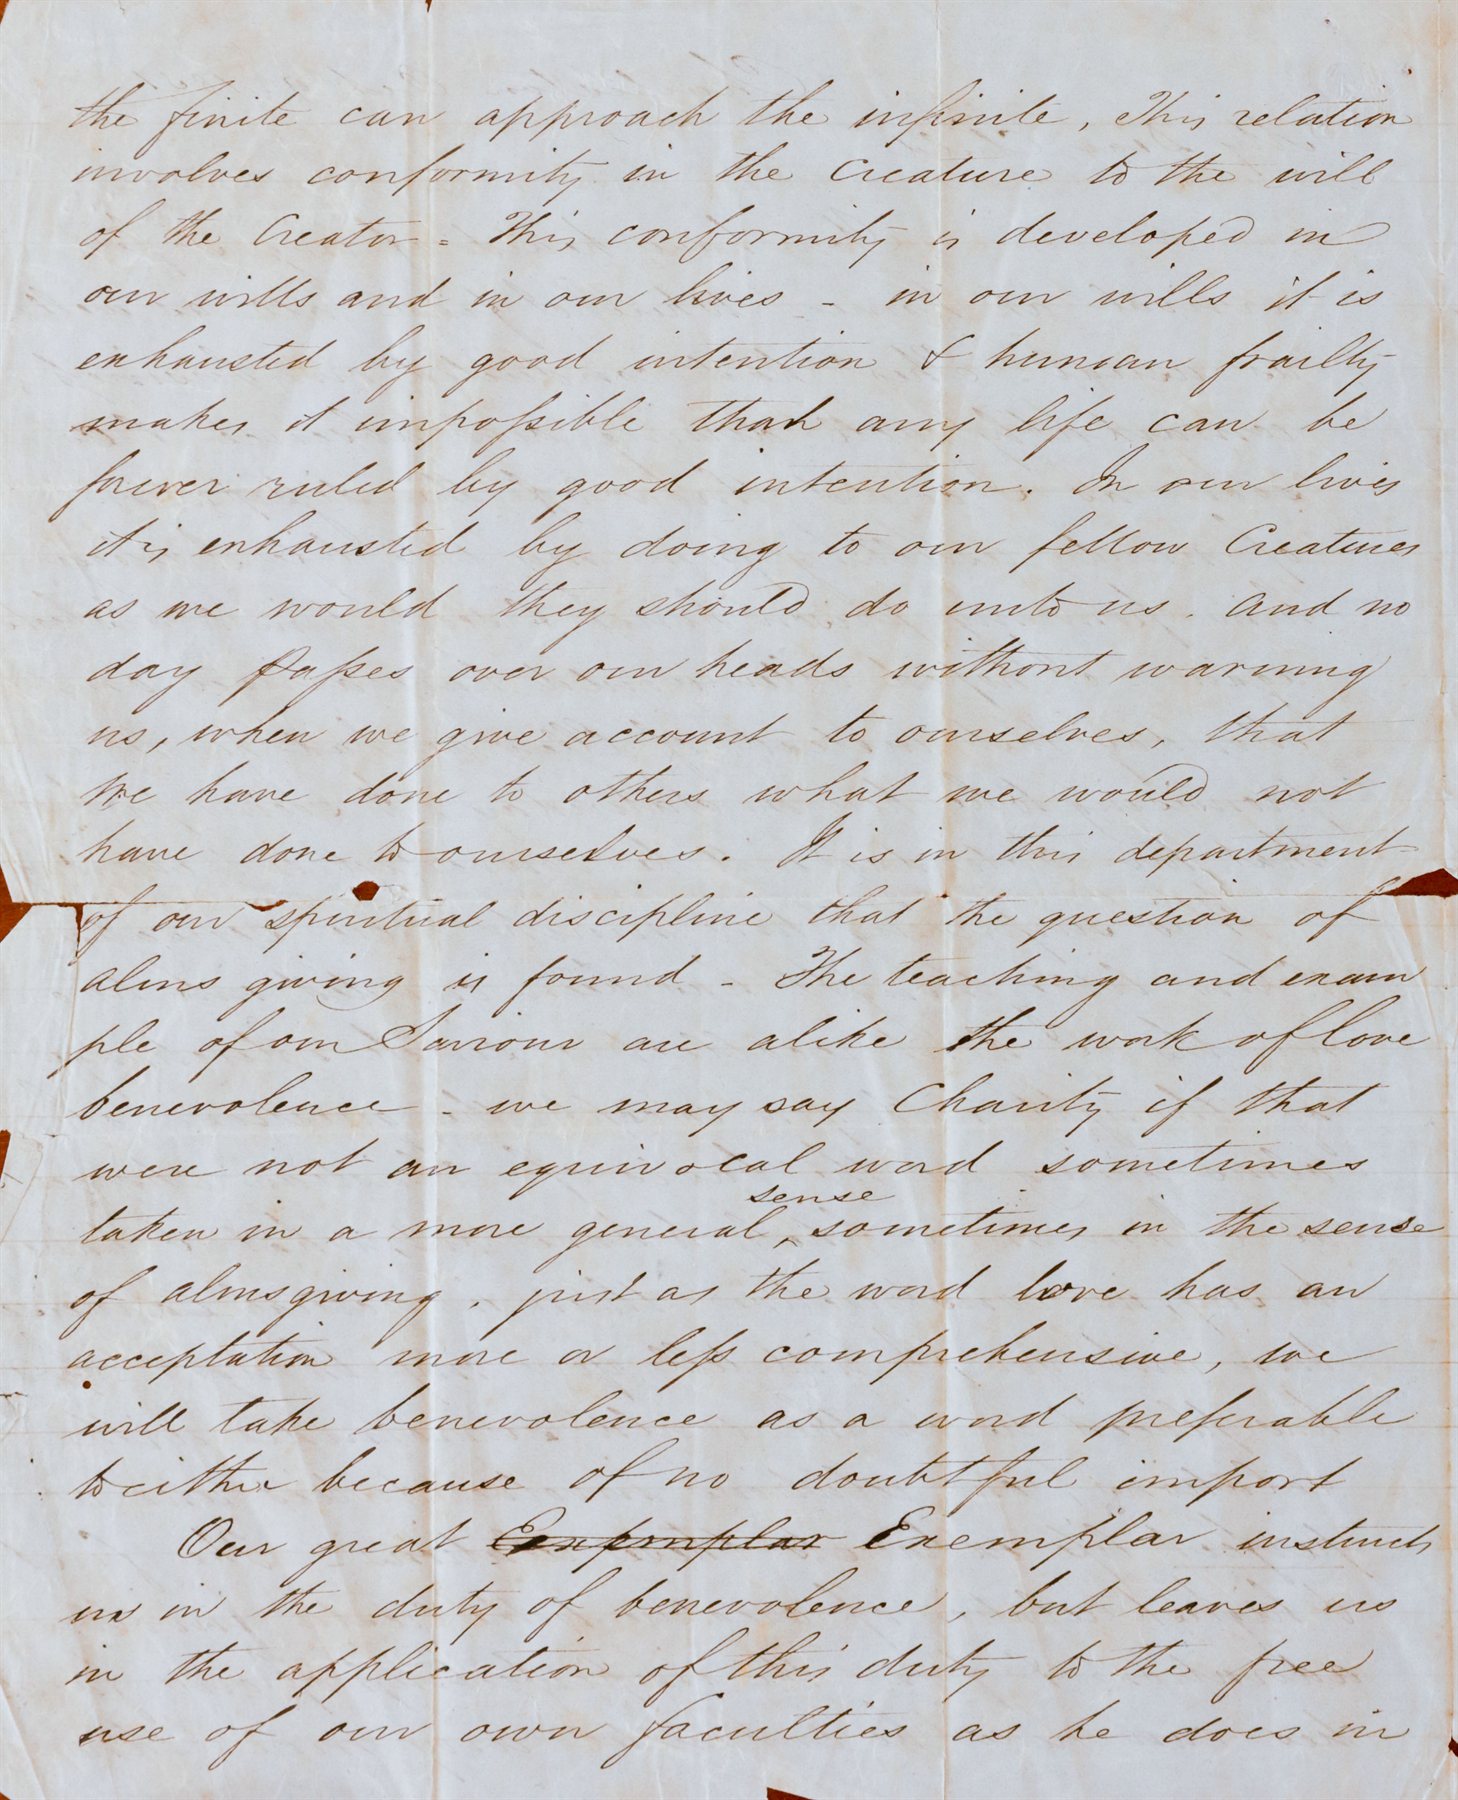 the finite can approach the infinite, This relation
involves conformity in the Creature to the will
of the Creator - This conformity is developed in
our wills and in our lives - in our wills it is
exhausted by good intention & human frailty
makes it impossible that any life can be
forever ruled by good intention. In our lives
it is exhausted by doing to our fellow Creatures
as we would they should do unto us. and no
day passes over our heads without warning
us, when we give account to ourselves, that
we have done to others what we would not
have done to ourselves. It is in this department
of our spiritual discipline that the question of
alms giving is found - The teaching and exam
ple of our Saviour are alike the work of love
benevolence - we may say Charity if that
were not an equivocal word sometimes
sense
taken in a more general, sometimes in the sense
of almsgiving. just as the word love has an
acceptation more or less comprehensive, we
will take benevolence as a word preferable
to either because of no doubtful import
Our great Exemplar instructs
us in the duty of benevolence, but leaves us
in the application of this duty to the free
use of our own faculties as he does in